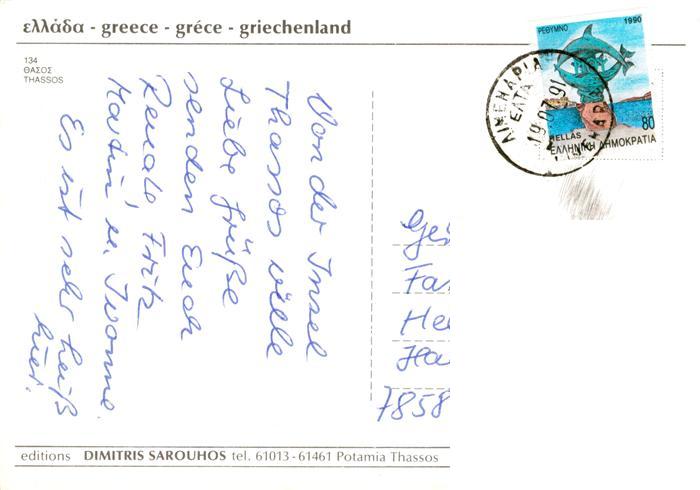 ελλάδα - greece - gréce - griechenland
134
ΘΑΣΟΣ
THASSOS
ΡΕΘΥΜΝΟ 1990
80
HELLAS
ΕΛΛΗΝΙΚΗ ΔΗΜΟΚΡΑΤΙΑ
ΛΙΜΕΝΑΡΙΑ
ΕΛΤΑ
19.07.91
Von der Insel
Thassos viele
Liebe Grüße
senden Euch
Renate Fritz
Martin u. Ivonne.
Es ist sehr heiß
hier.
Fa
He
Ha
7858
editions DIMITRIS SAROUHOS tel. 61013-61461 Potamia Thassos